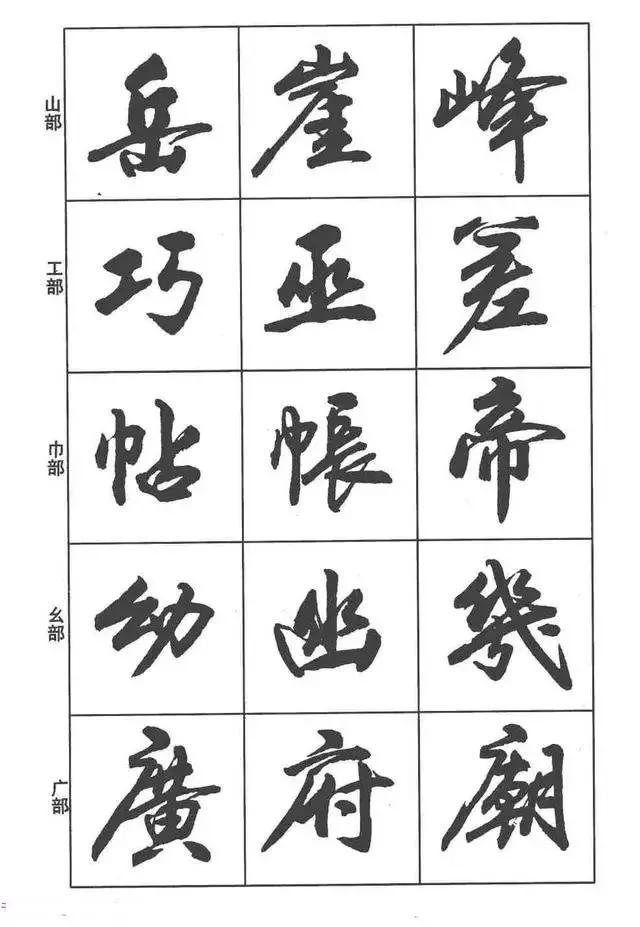 山部 岳 崖 峰
工部 巧 巫 差
巾部 帖 帳 帝
幺部 幼 幽 幾
广部 廣 府 廟